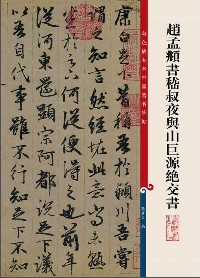 彩色放大本中國著名碑帖
趙孟頫書嵇叔夜與山巨源絕交書
康白足下昔稱吾於潁川吾嘗
謂之知言然經怪此意尚未熟
悉於足下何從便得之也前年
從河東還顯宗阿都說足下議
以吾自代事雖不行知足下不知